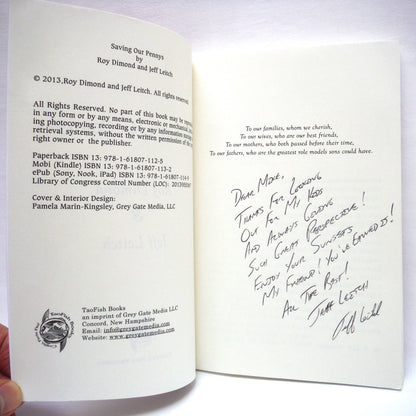 Saving Our Pennys
by
Roy Dimond and Jeff Leitch
© 2013,Roy Dimond and Jeff Leitch. All rights
All Rights Reserved. No part of this book may be
in any form or by any means, electronic or mechanical,
photocopying, recording or by any information storage
retrieval systems, without the written permission of the
right owner or the publisher.
Paperback ISBN 13: 978-1-61807-112-5
Mobi (Kindle) ISBN 13: 978-1-61807-113-2
ePub (Sony, Nook, iPad) ISBN 13: 978-1-61807-114-9
Library of Congress Control Number (LOC):
Cover & Interior Design:
Pamela Marin-Kingsley, Grey Gate Media, LLC
TaoFish Books
an imprint of Grey Gate Media LLC
Concord, New Hampshire
Email: info@greygatemedia.com
Website: www.greygatemedia.com
To our families, whom we cherish,
To our wives, who are our best friends,
To our mothers, who both passed before their time,
To our fathers, who are the greatest role models sons could have.
DEAR MIKE,
THANKS FOR LOOKING
OUT FOR MY KIDS
AND ALWAYS GIVING
SUCH GREAT PERSPECTIVE!
ENJOY YOUR SUNSETS
MY FRIEND! YOU'VE EARNED IT!
ALL THE BEST!
JEFF LEITCH
Jeff Leitch